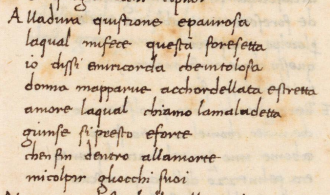 Alladura quistione epaurosa
laqual mifece questa foresetta
io dissi emiricorda chentolosa
donna mapparue acchordellata estretta
amore laqual chiamo lamandetta
giunse si presto eforte
chenfin dentro allamorte
micolpir gliocchi suoi